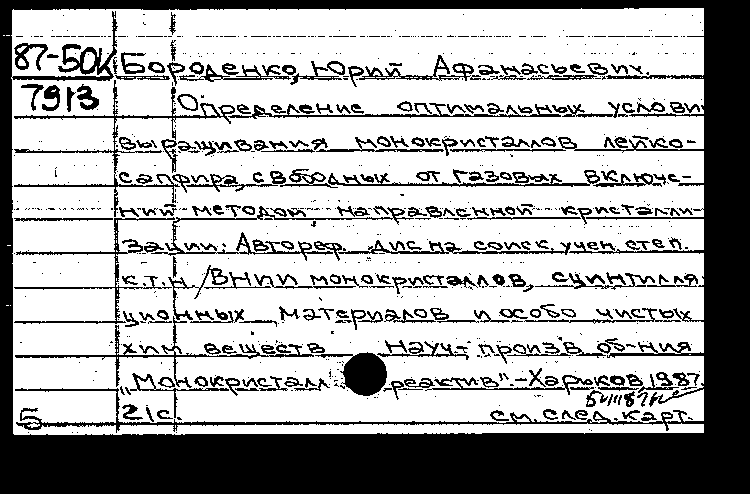 87-50К Бороденко, Юрий Афанасьевич.
7913 Определение оптимальных услови
выращивания монокристаллов лейко-
сапфира, свободных от газовых включе-
ний методом направленной кристалли-
зации: Автореф. дис на соиск. учен. степ.
к.т.н. /ВНИИ монокристаллов, сцинтилля
ционных материалов и особо чистых
хим веществ Науч.-произв. об-ния
„Монокристалл реактив". -Харьков, 1987.
5 21с. см. след. карт.